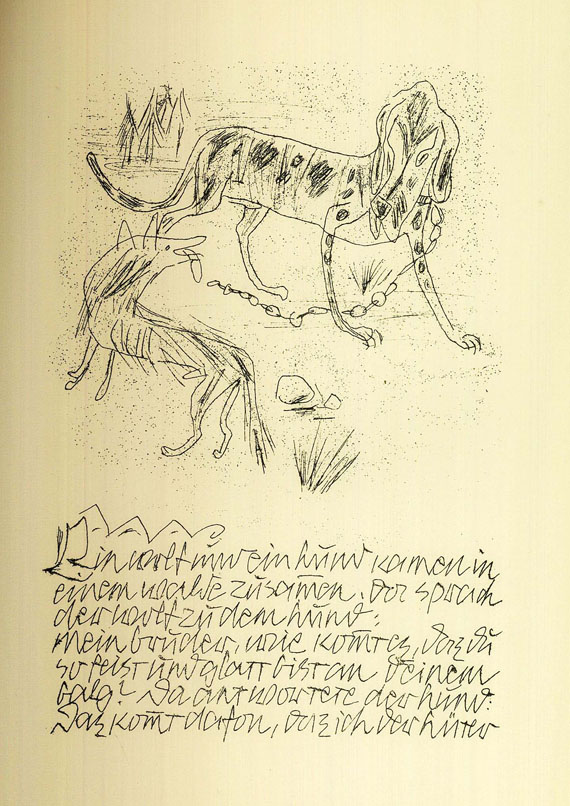 Ein wolf und ein hund kamen in
einem walde zusam̄en. Do sprach
der wolf zu dem hund:
Mein bruder, wie kom̄t es, daz du
so feist und glatt bist an deinem
balg? Da antwortete der hund:
Daz kom̄t dafon, daz ich der hüter